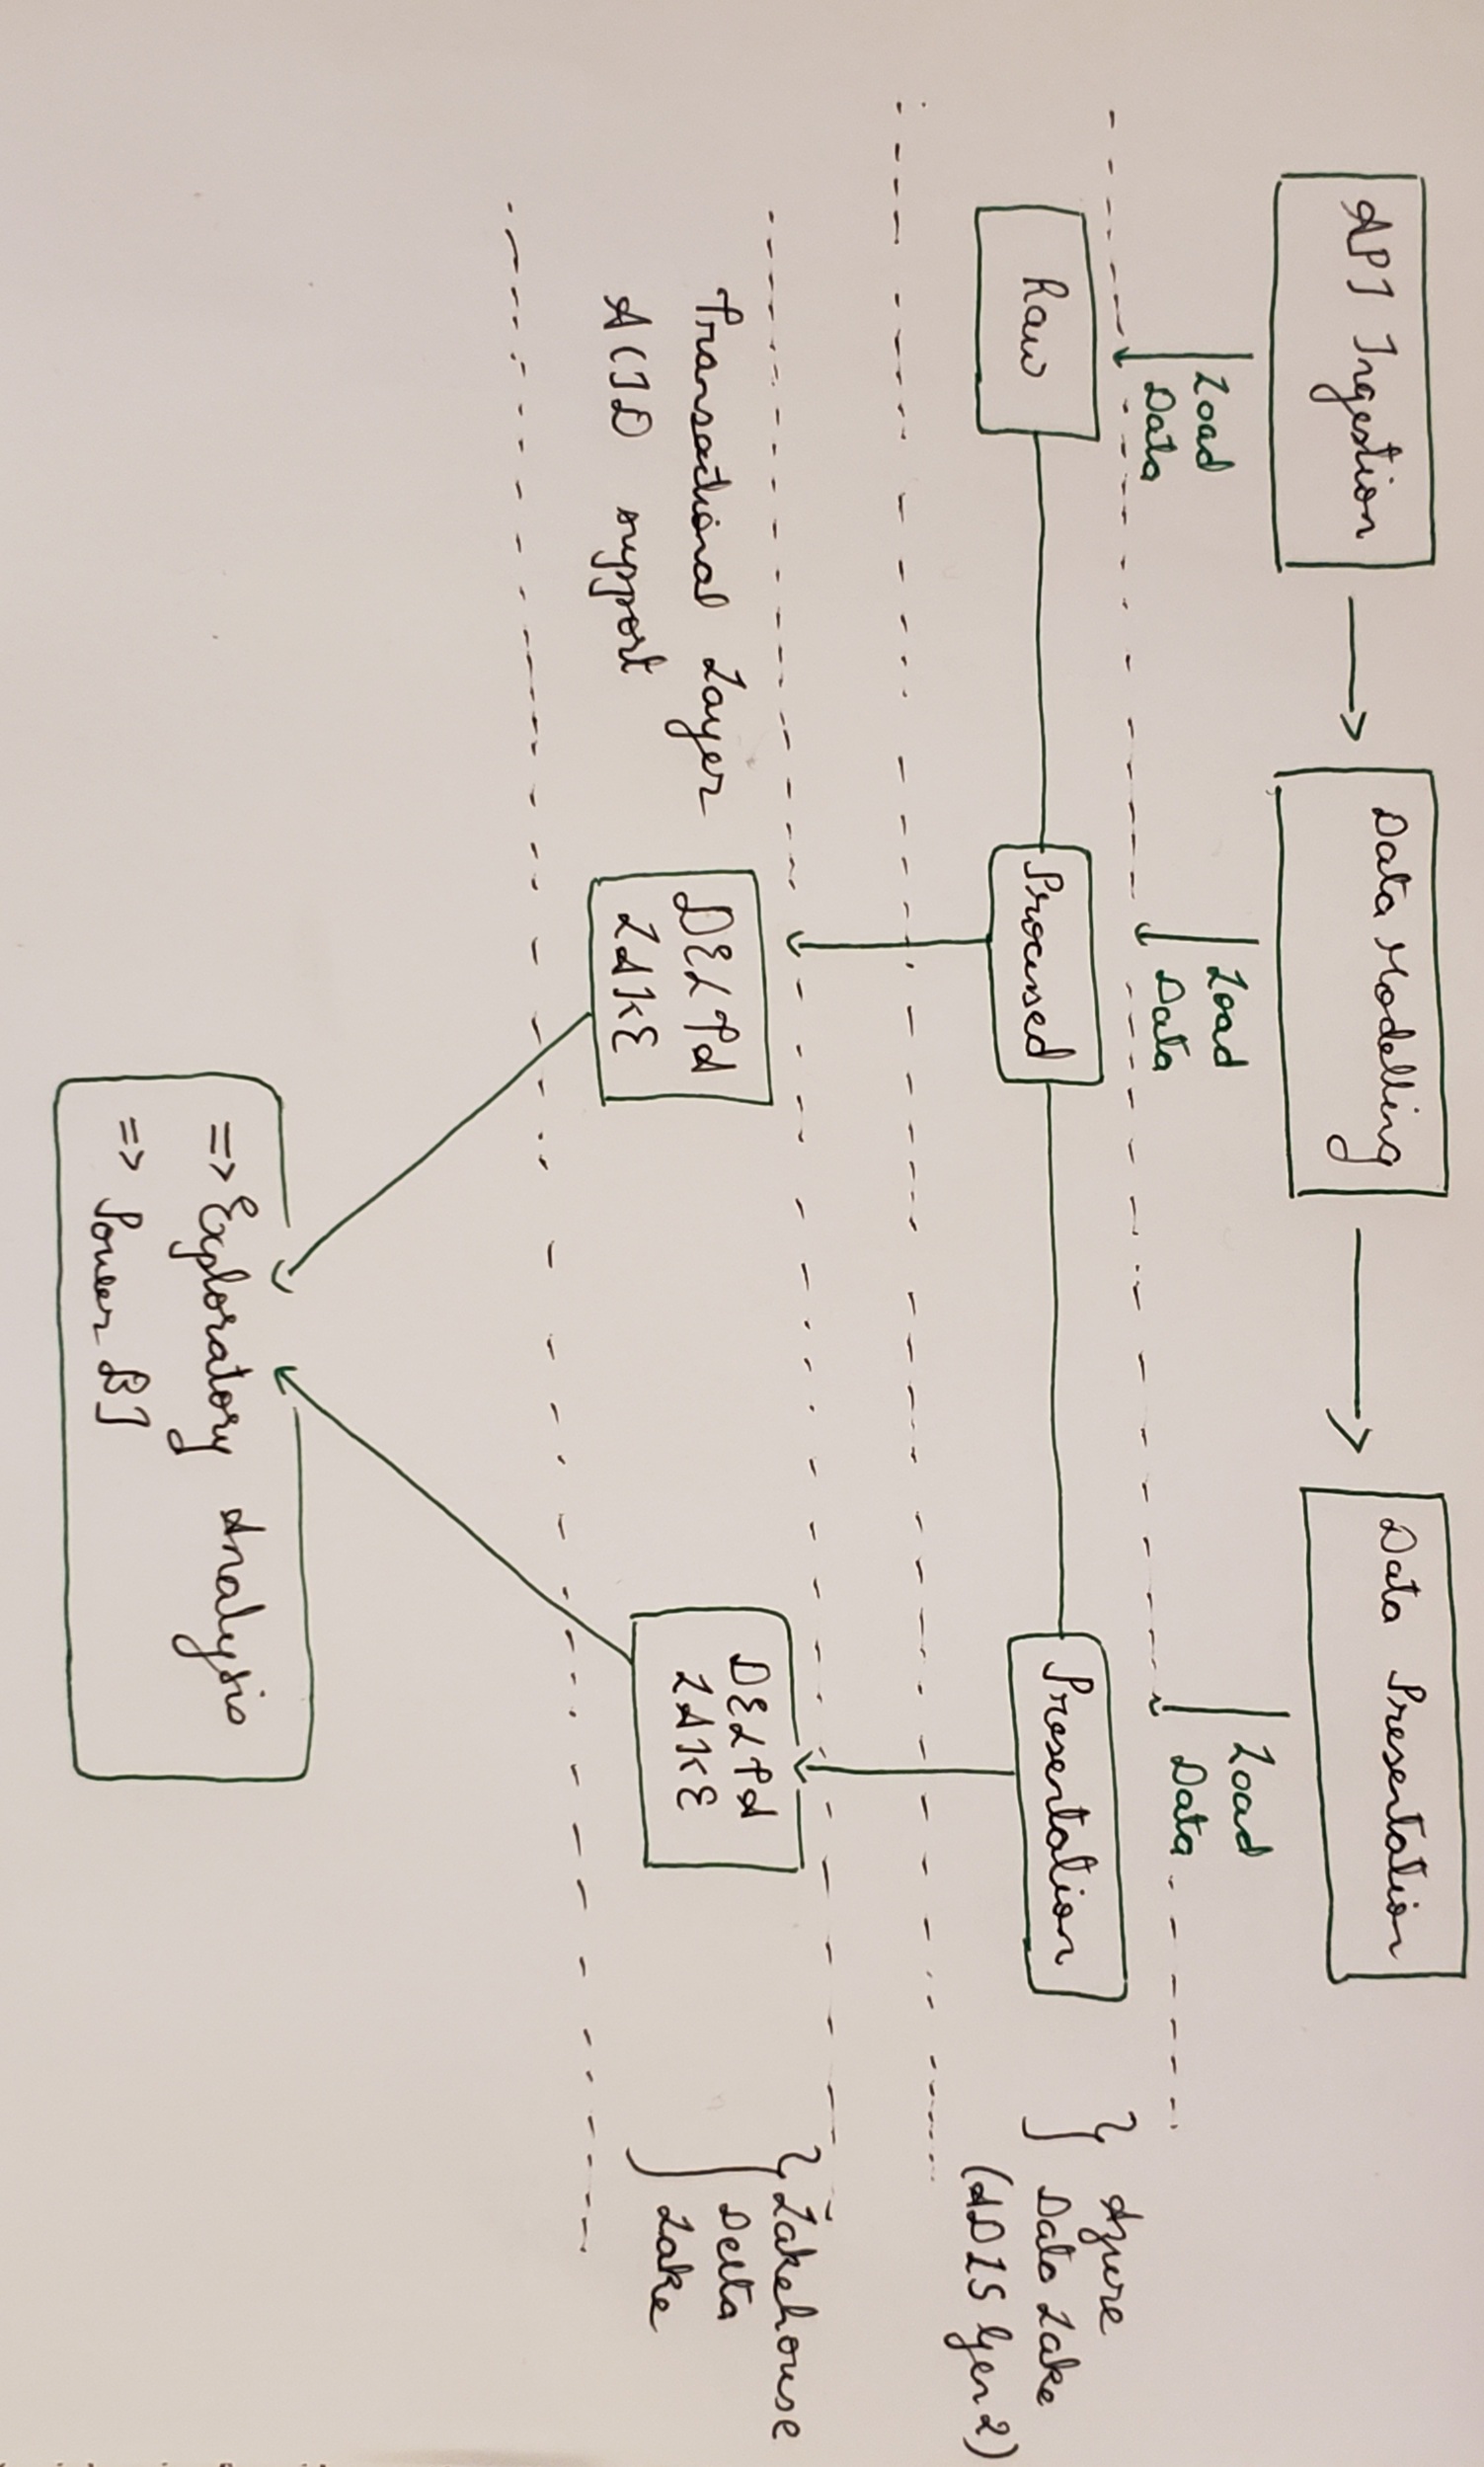 API Ingestion
Data Modelling
Data Presentation
Load
Data
Load
Data
Load
Data
Raw
Processed
Presentation
Azure
Data Lake
(ADLS Gen 2)
Transactional Layer
ACID support
DELTA
LAKE
DELTA
LAKE
Lakehouse
Delta
Lake
=> Exploratory Analysis
=> Power BI